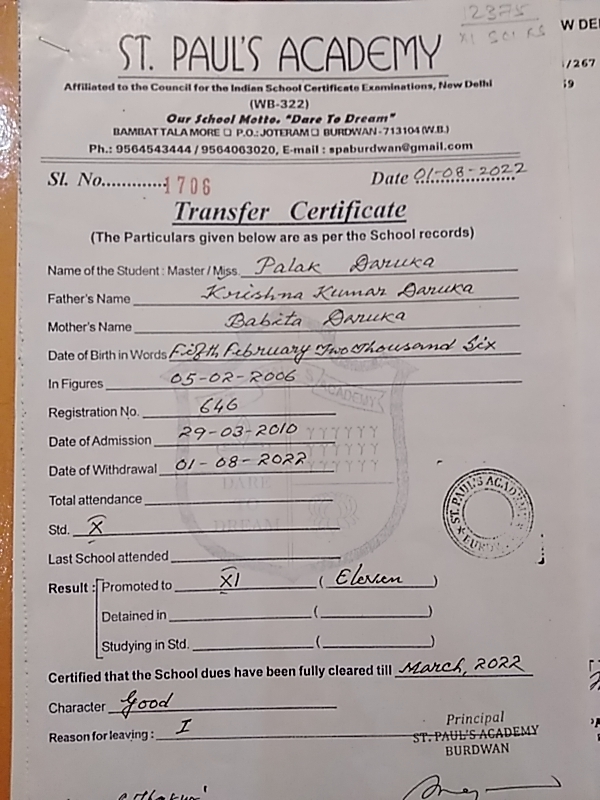 12375
XI SCI RS
W DEL
/267
59
ST. PAUL'S ACADEMY
Affiliated to the Council for the Indian School Certificate Examinations, New Delhi
(WB-322)
Our School Motto. "Dare To Dream"
BAMBATTALA MORE ❑ P.O.: JOTERAM ❑ BURDWAN - 713104 (W.B.)
Ph.: 9564543444 / 9564063020, E-mail : spaburdwan@gmail.com
Sl. No..............1706 Date 01-08-2022
Transfer Certificate
(The Particulars given below are as per the School records)
Name of the Student : Master / Miss. Palak Daruka
Father's Name Krishna Kumar Daruka
Mother's Name Babita Daruka
Date of Birth in Words Fifth February Two Thousand Six
In Figures 05-02-2006
Registration No. 646
Date of Admission 29-03-2010
Date of Withdrawal 01-08-2022
Total attendance
Std. X
Last School attended
Result : Promoted to XI ( Eleven )
Detained in ( )
Studying in Std. ( )
Certified that the School dues have been fully cleared till March, 2022
Character Good
Reason for leaving : I
Principal
ST. PAUL'S ACADEMY
BURDWAN
ACADEMY
DARE
TO
DREAM
ST. PAUL'S ACADEMY